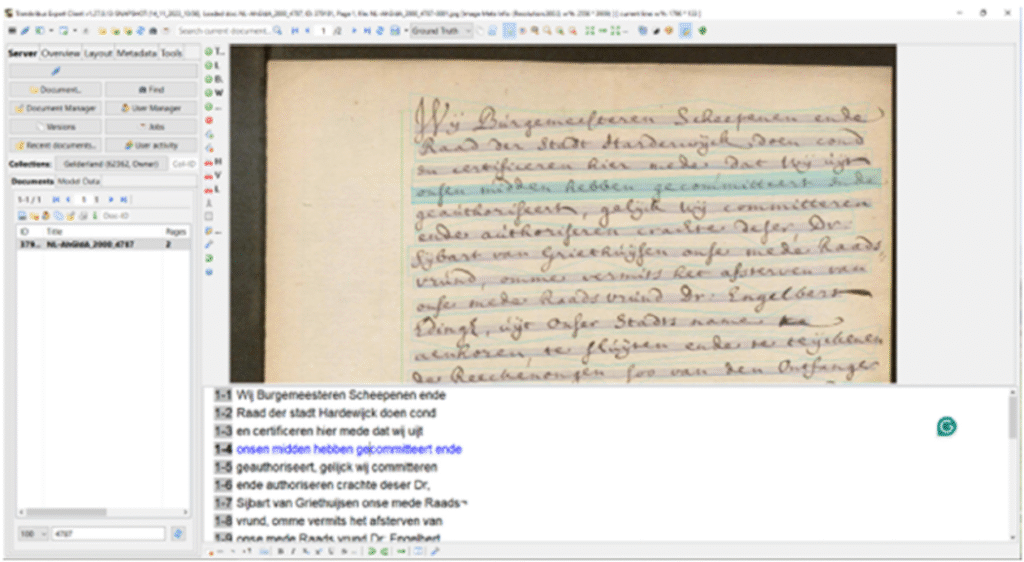 Transkribus Expert Client
Search current document...
1 /2
Ground Truth
Server Overview Layout Metadata Tools
Document..
Find
Document Manager
User Manager
Versions
Jobs
Recent documents..
User activity
Collections: Gelderland (62362, Owner) Col-ID
Documents Model Data
1-1 / 1
1 1
Doc-ID
ID Title Pages
379... NL-AhGldA_2000_4787 2
100 4787
T..
L
B.
W
H
V
L
Wij Burgemeesteren Scheepenen ende
Raad der Stadt Harderwijck, doen cond
en certificeren hier mede dat wij uijt
onsen midden hebben gecommitteert ende
geauthoriseert, gelijck wij committeren
ende authoriseren crachte deser, Dr.
Sijbart van Griethuijsen onse mede Raads
vrund, omme vermits het afsterven van
onse mede Raads vrund Dr. Engelbert
Edingk, uijt onser Stadts name
aenhoren, te sluijten ende te teijckenen
de Reeckenongen soo van den Ontfanger
1-1 Wij Burgemeesteren Scheepenen ende
1-2 Raad der stadt Hardewijck doen cond
1-3 en certificeren hier mede dat wij uijt
1-4 onsen midden hebben gecommitteert ende
1-5 geauthoriseert, gelijck wij committeren
1-6 ende authoriseren crachte deser Dr,
1-7 Sijbart van Griethuijsen onse mede Raads¬
1-8 vrund, omme vermits het afsterven van
1-9 onse mede Raads vrund Dr: Engelbert